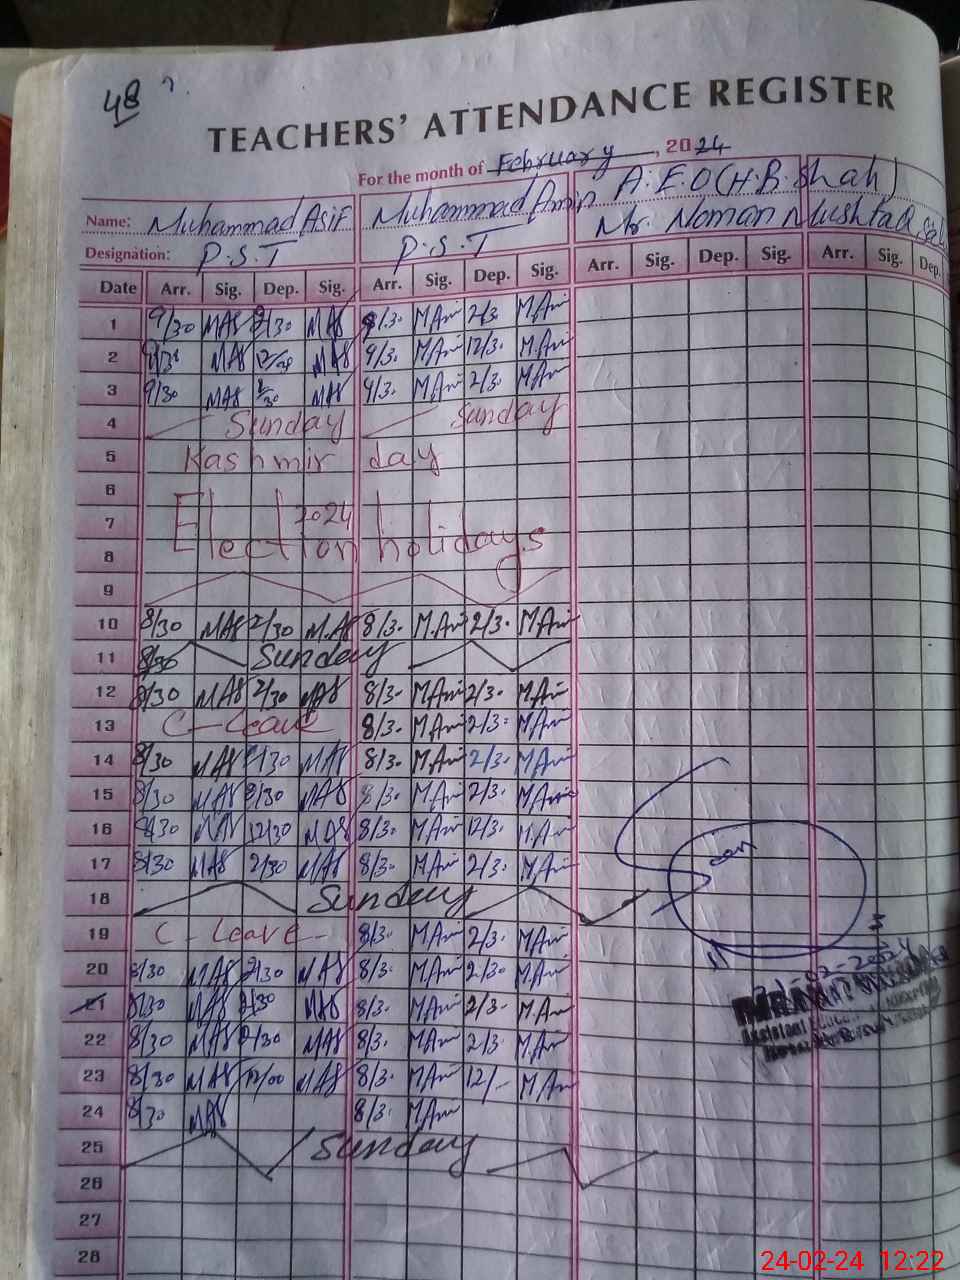 48
TEACHERS' ATTENDANCE REGISTER
For the month of February, 2024
Name: Muhammad Asif Muhammad Amin A.E.O (H.B.Shah)
Mr. Noman Mushtaq
Designation: P.S.T P.S.T
Date Arr. Sig. Dep. Sig. Arr. Sig. Dep. Sig. Arr. Sig. Dep. Sig. Arr. Sig. Dep.
1 9/30 MAS 2/30 MAS 8/3. M.Am 2/3. M.Am
2 MAS MAS 9/3. M.Am 12/3. M.Am
3 9/30 MAS MAS 9/3. M.Am 2/3. M.Am
4 Sunday Sunday
5 Kashmir day
6
7 2024
8 Election holidays
9
10 8/30 MAS 2/30 M.AS 8/3. M.Am 2/3. M.Am
11 8/30 Sunday
12 8/30 MAS 2/30 MAS 8/3. M.Am 2/3. M.Am
13 C-Leave 8/3. M.Am 2/3. M.Am
14 8/30 MAS 2/30 MAS 8/3. M.Am 2/3. M.Am
15 8/30 MAS 2/30 MAS 8/3. M.Am 2/3. M.Am
16 8/30 MAS 12/30 MAS 8/3. M.Am 12/3. M.Am
17 8/30 MAS 2/30 MAS 8/3. M.Am 2/3. M.Am
18 Sunday
19 C-Leave- 8/3. M.Am 2/3. M.Am
20 8/30 MAS 2/30 MAS 8/3. M.Am 2/30 M.Am
21 8/30 MAS 2/30 MAS 8/3. M.Am 2/3. M.Am
22 8/30 MAS 2/30 MAS 8/3. M.Am 2/3. M.Am
23 8/30 MAS 12/00 MAS 8/3. M.Am 12/- M.Am
24 8/30 MAS 8/3. M.Am
25 Sunday
26
27
28
Assistant
24-02-24 12:22